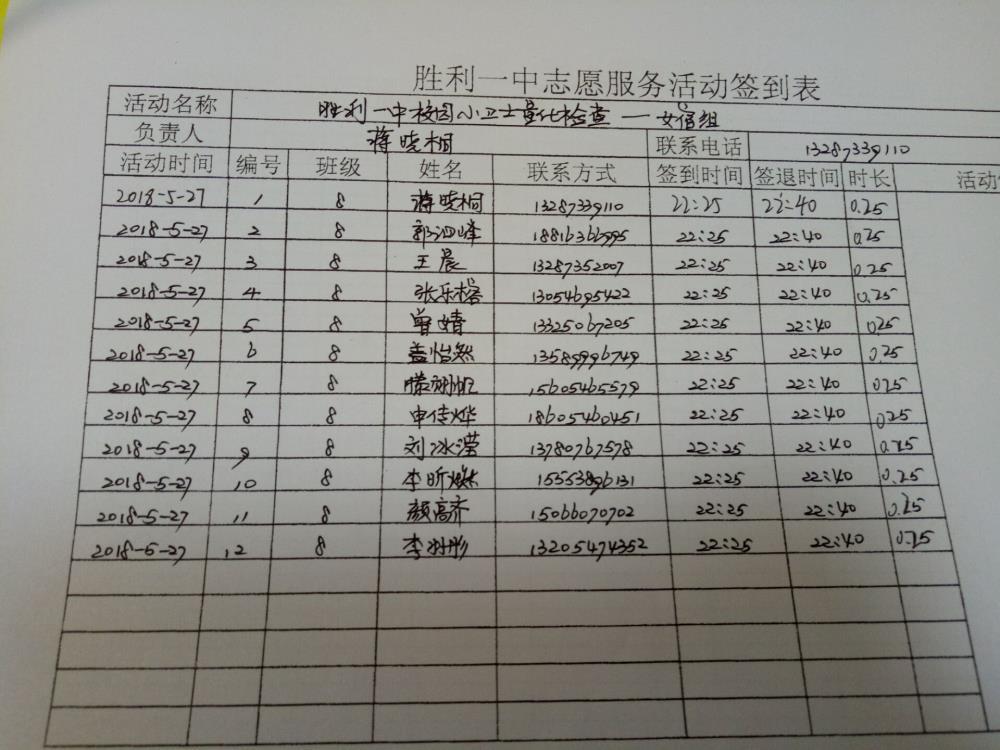 胜利一中志愿服务活动签到表
活动名称 胜利一中校园小卫士量化检查 — 女宿组
负责人 蒋晓桐 联系电话 13287339110
活动时间 编号 班级 姓名 联系方式 签到时间 签退时间 时长 活动
2018-5-27 1 8 蒋晓桐 13287339110 22:25 22:40 0.25
2018-5-27 2 8 郭泗峰 18816366995 22:25 22:40 0.25
2018-5-27 3 8 王晨 13287352007 22:25 22:40 0.25
2018-5-27 4 8 张乐榕 13054695422 22:25 22:40 0.25
2018-5-27 5 8 曾婧 13325067205 22:25 22:40 0.25
2018-5-27 6 8 盖怡然 13589996749 22:25 22:40 0.25
2018-5-27 7 8 15605465579 22:25 22:40 0.25
2018-5-27 8 8 申佳烨 18605460451 22:25 22:40 0.25
2018-5-27 9 8 刘冰滢 13780767578 22:25 22:40 0.25
2018-5-27 10 8 李昕燃 15553896131 22:25 22:40 0.25
2018-5-27 11 8 颜高齐 15066070702 22:25 22:40 0.25
2018-5-27 12 8 13205474352 22:25 22:40 0.25